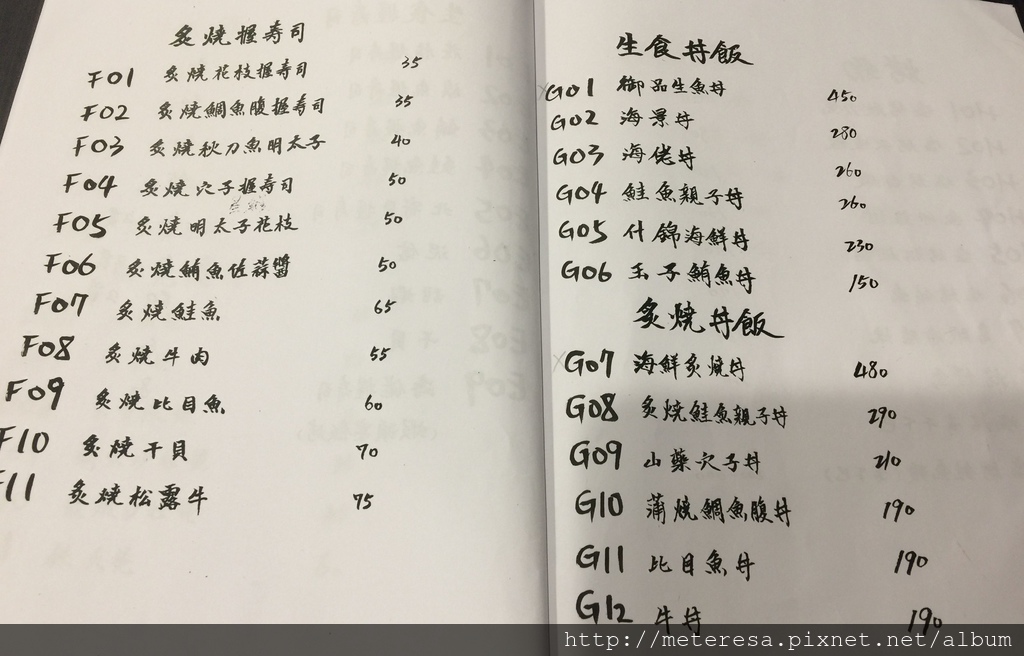 炙燒握壽司
F01 炙燒花枝握壽司 35
F02 炙燒鯛魚腹握壽司 35
F03 炙燒秋刀魚明太子 40
F04 炙燒穴子握壽司 50
F05 炙燒明太子花枝 50
F06 炙燒鮪魚佐蒜醬 50
F07 炙燒鮭魚 65
F08 炙燒牛肉 55
F09 炙燒比目魚 60
F10 炙燒干貝 70
F11 炙燒松露牛 75
生食丼飯
G01 御品生魚丼 450
G02 海景丼 280
G03 海佬丼 260
G04 鮭魚親子丼 260
G05 什錦海鮮丼 230
G06 玉子鮪魚丼 150
炙燒丼飯
G07 海鮮炙燒丼 480
G08 炙燒鮭魚親子丼 290
G09 山藥穴子丼 210
G10 蒲燒鯛魚腹丼 190
G11 比目魚丼 190
G12 牛丼 190
http://meteresa.pixnet.net/album